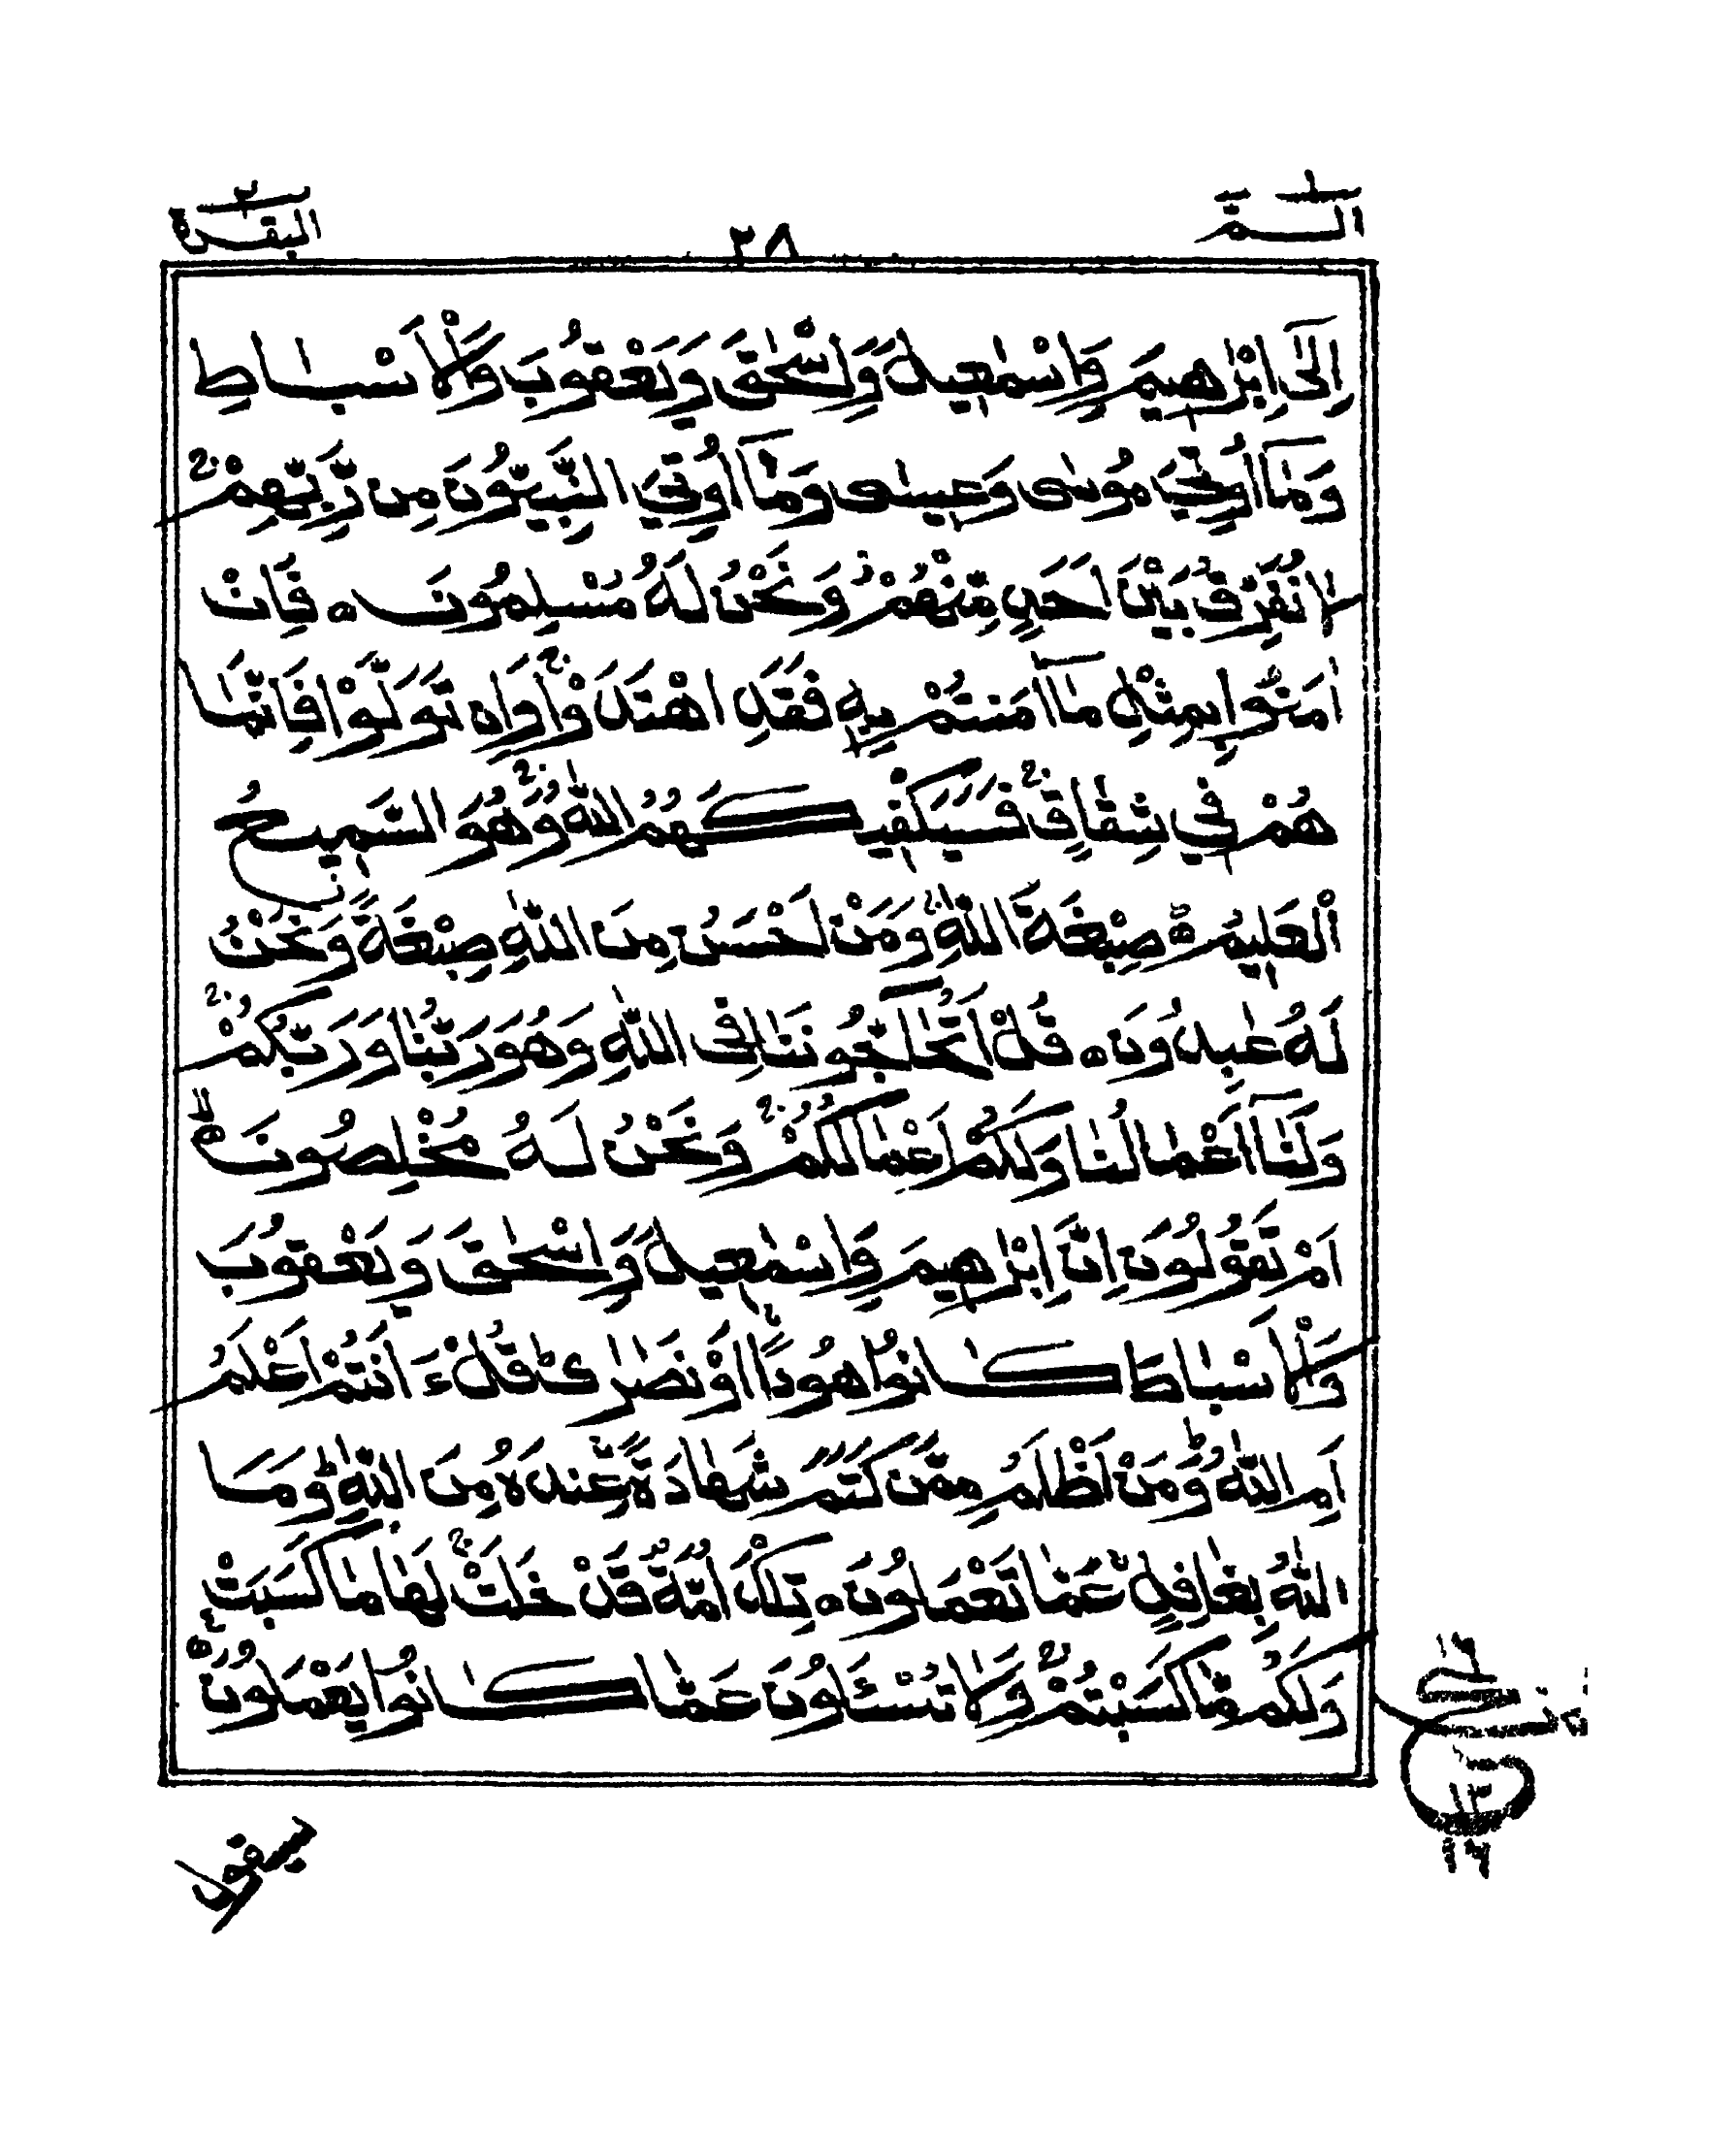 الٓمّٓ ١
٢٨
البقرة ٢
اِلٰٓى اِبْرٰهٖيْمَ وَاِسْمٰعِيْلَ وَاِسْحٰقَ وَيَعْقُوْبَ وَالْاَسْبَاطِ
وَمَآ اُوْتِيَ مُوْسٰى وَعِيْسٰى وَمَآ اُوْتِيَ النَّبِيُّوْنَ مِنْ رَّبِّهِمْ ۚ
لَا نُفَرِّقُ بَيْنَ اَحَدٍ مِّنْهُمْ ۖ وَنَحْنُ لَهٗ مُسْلِمُوْنَ ه فَاِنْ
اٰمَنُوْا بِمِثْلِ مَآ اٰمَنْتُمْ بِهٖ فَقَدِ اهْتَدَوْا ۚ وَاِنْ تَوَلَّوْا فَاِنَّمَا
هُمْ فِيْ شِقَاقٍ ۚ فَسَيَكْفِيْكَهُمُ اللّٰهُ ۚ وَهُوَ السَّمِيْعُ
الْعَلِيْمُ ه صِبْغَةَ اللّٰهِ ۚ وَمَنْ اَحْسَنُ مِنَ اللّٰهِ صِبْغَةً وَّنَحْنُ
لَهٗ عٰبِدُوْنَ ه قُلْ اَتُحَآجُّوْنَنَا فِى اللّٰهِ وَهُوَ رَبُّنَا وَرَبُّكُمْ ۚ
وَلَنَآ اَعْمَالُنَا وَلَكُمْ اَعْمَالُكُمْ ۚ وَنَحْنُ لَهٗ مُخْلِصُوْنَ ه
اَمْ تَقُوْلُوْنَ اِنَّ اِبْرٰهٖيْمَ وَاِسْمٰعِيْلَ وَاِسْحٰقَ وَيَعْقُوْبَ
وَالْاَسْبَاطَ كَانُوْا هُوْدًا اَوْ نَصٰرٰى ۗ قُلْ ءَاَنْتُمْ اَعْلَمُ
اَمِ اللّٰهُ ۗ وَمَنْ اَظْلَمُ مِمَّنْ كَتَمَ شَهَادَةً عِنْدَهٗ مِنَ اللّٰهِ ۗ وَمَا
اللّٰهُ بِغَافِلٍ عَمَّا تَعْمَلُوْنَ ه تِلْكَ اُمَّةٌ قَدْ خَلَتْ ۚ لَهَا مَا كَسَبَتْ
وَلَكُمْ مَّا كَسَبْتُمْ ۚ وَلَا تُسْـَٔلُوْنَ عَمَّا كَانُوْا يَعْمَلُوْنَ ه
١٦
ع
١٦
سيقول